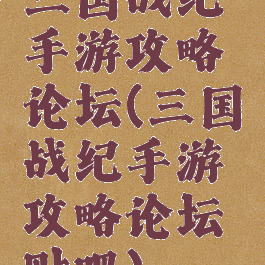 三国战纪
手游攻略
论坛(三国
战纪手游
攻略论坛
贴吧)